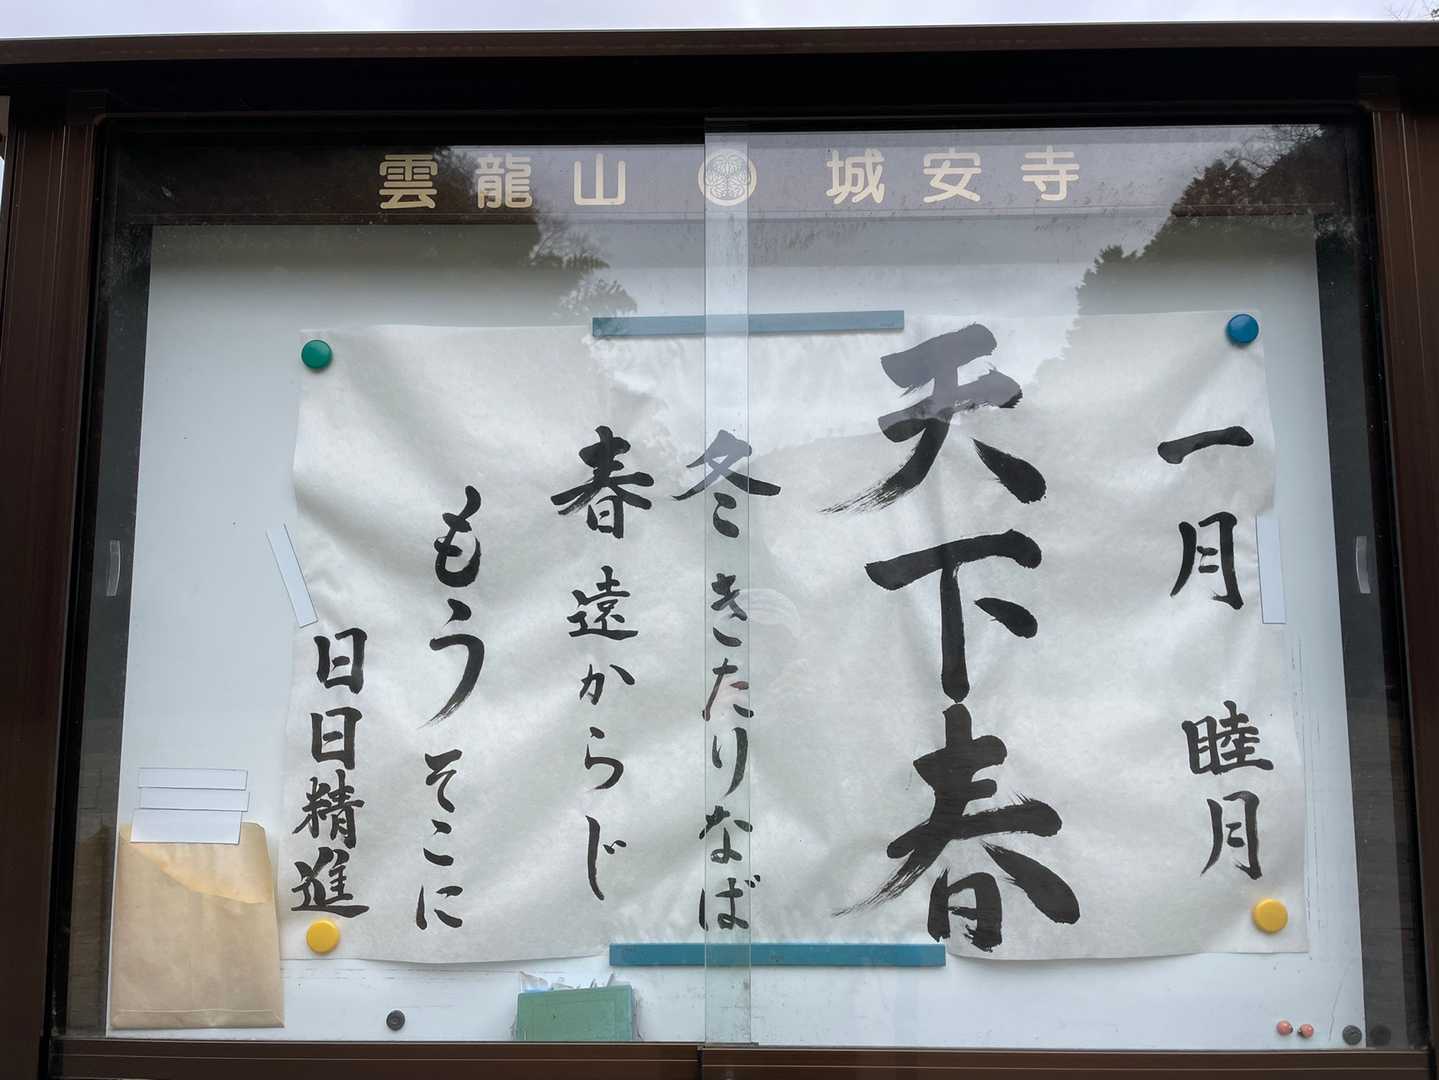 雲龍山 城安寺
一月 睦月
天下春
冬きたりなば
春遠からじ
もうそこに
日日精進